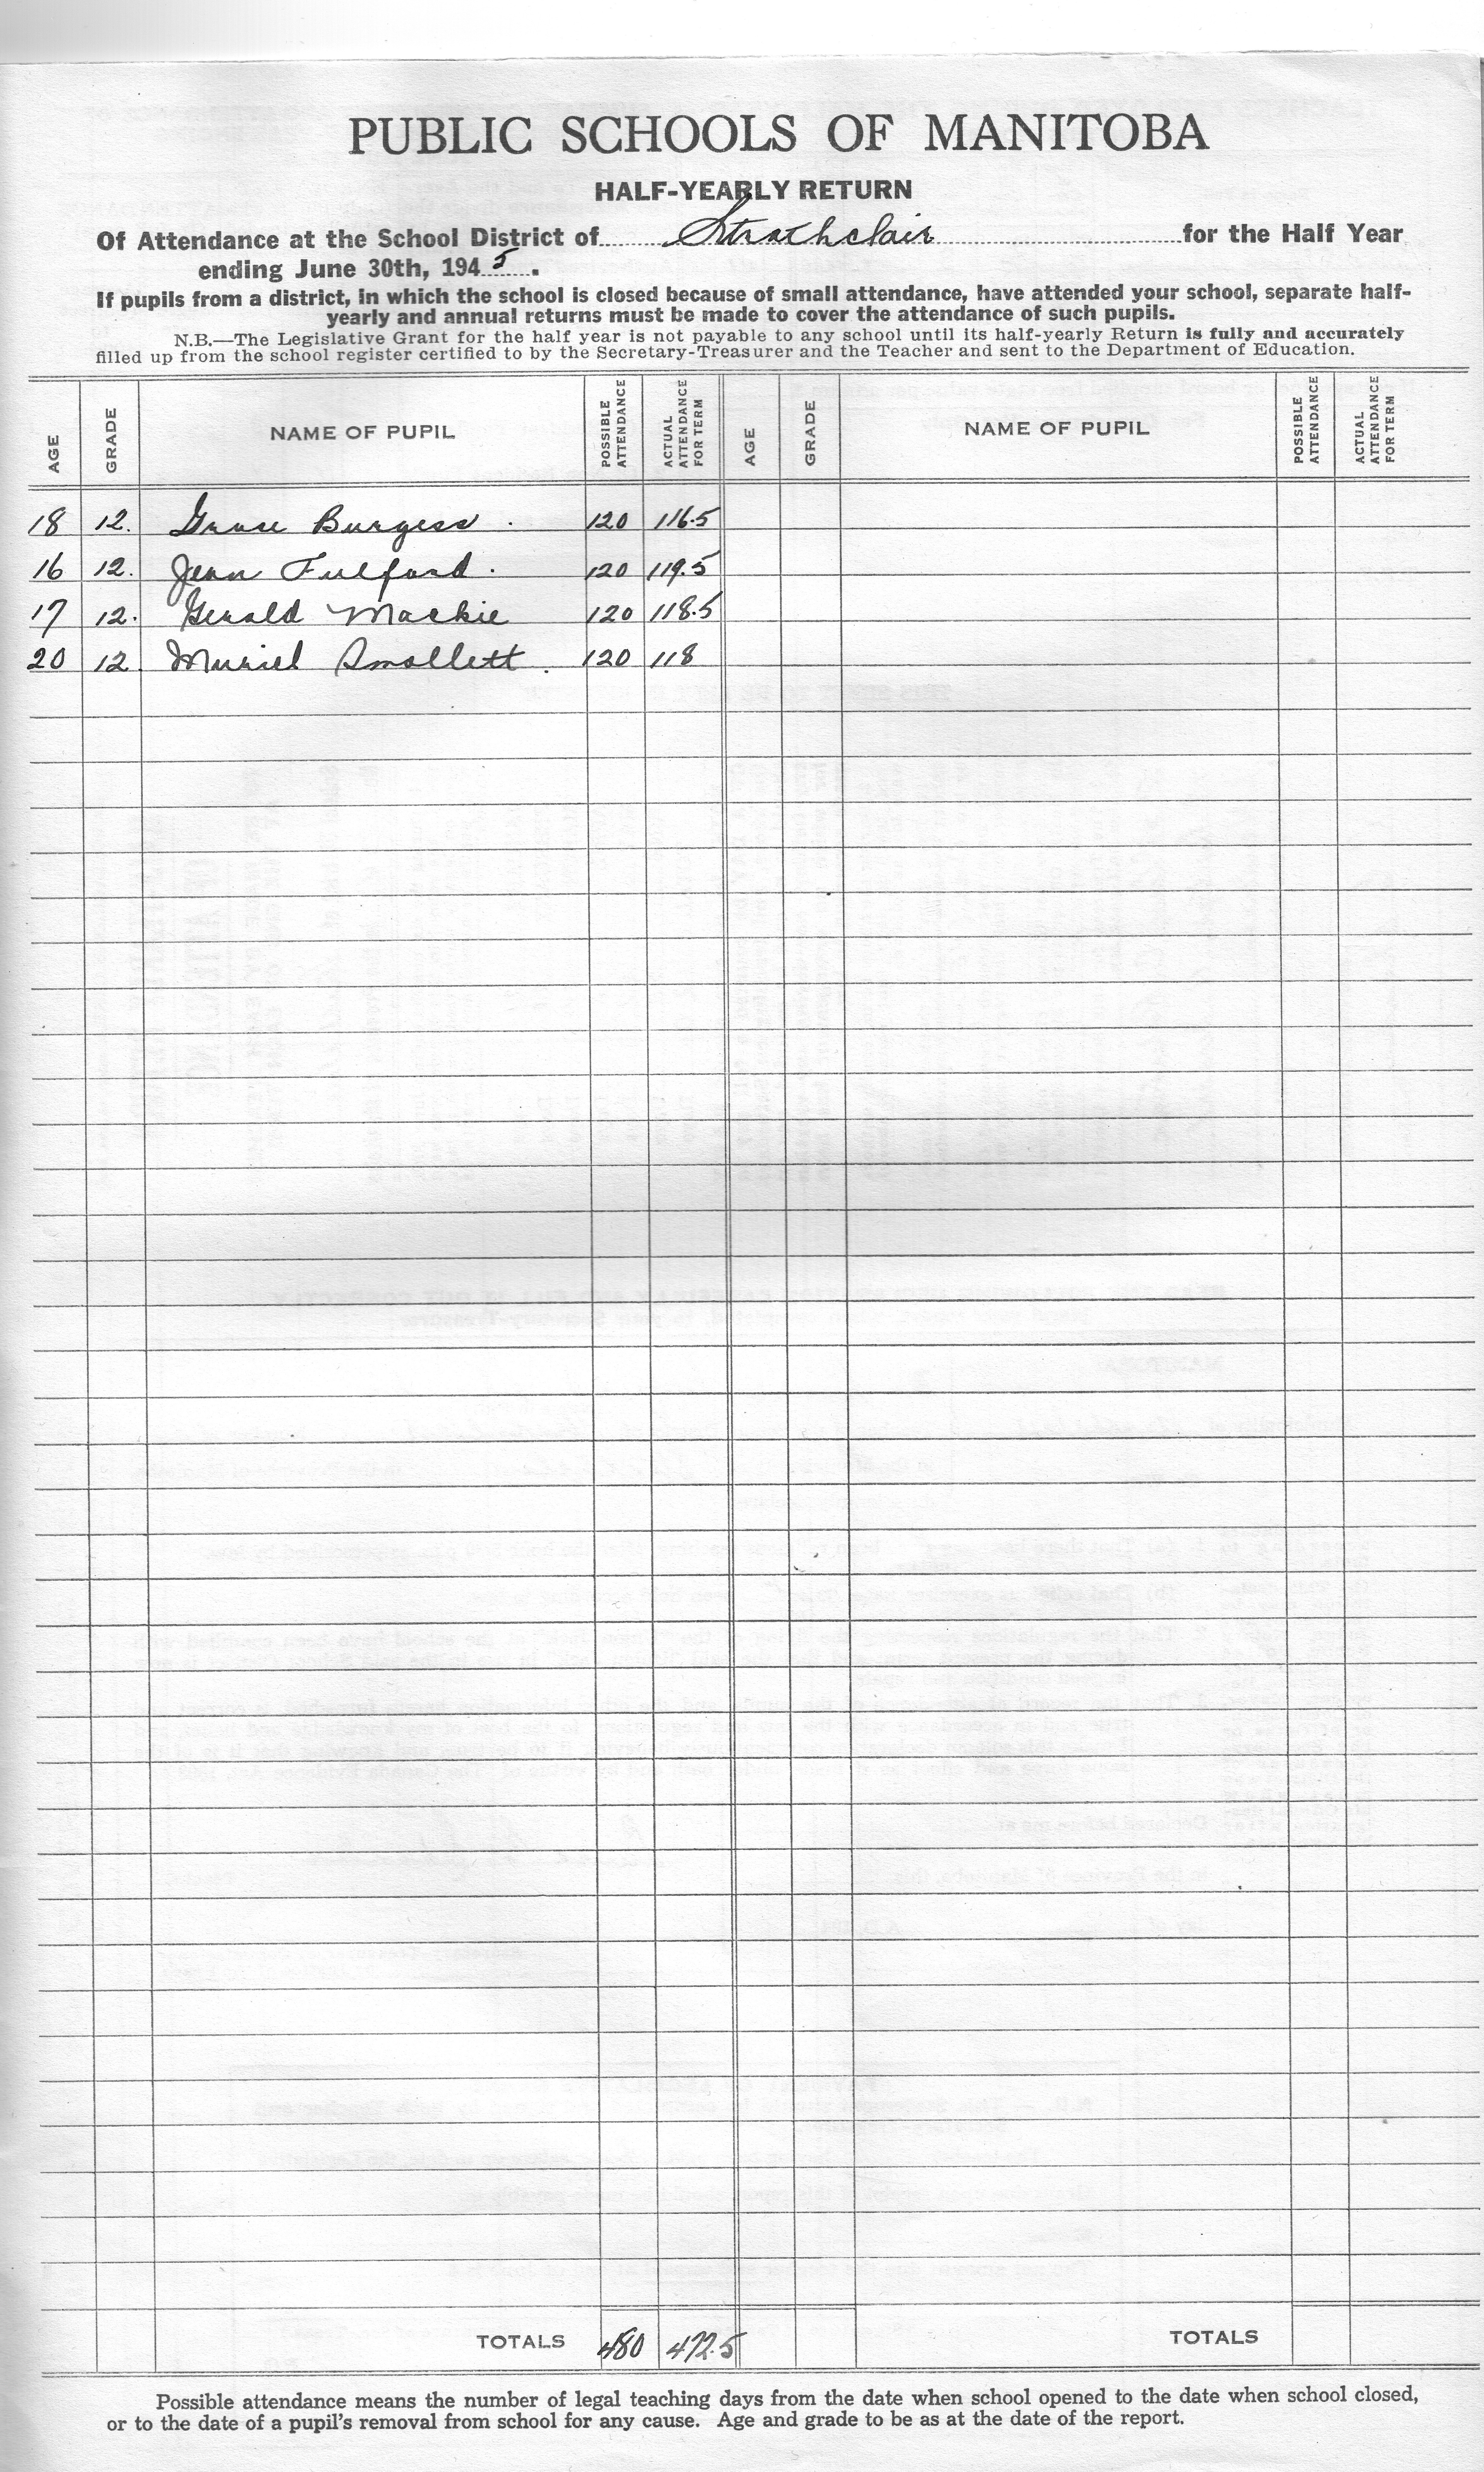 PUBLIC SCHOOLS OF MANITOBA
HALF-YEARLY RETURN
Of Attendance at the School District of Strathclair for the Half Year
ending June 30th, 1945.
If pupils from a district, in which the school is closed because of small attendance, have attended your school, separate half-
yearly and annual returns must be made to cover the attendance of such pupils.
N.B.—The Legislative Grant for the half year is not payable to any school until its half-yearly Return is fully and accurately
filled up from the school register certified to by the Secretary-Treasurer and the Teacher and sent to the Department of Education.
AGE GRADE NAME OF PUPIL POSSIBLE ATTENDANCE ACTUAL ATTENDANCE FOR TERM AGE GRADE NAME OF PUPIL POSSIBLE ATTENDANCE ACTUAL ATTENDANCE FOR TERM
18 12. Grace Burgess . 120 116.5
16 12. Jean Fulford . 120 119.5
17 12. Gerald Mackie 120 118.5
20 12. Muriel Smollett . 120 118
TOTALS 480 472.5 TOTALS
Possible attendance means the number of legal teaching days from the date when school opened to the date when school closed,
or to the date of a pupil's removal from school for any cause. Age and grade to be as at the date of the report.